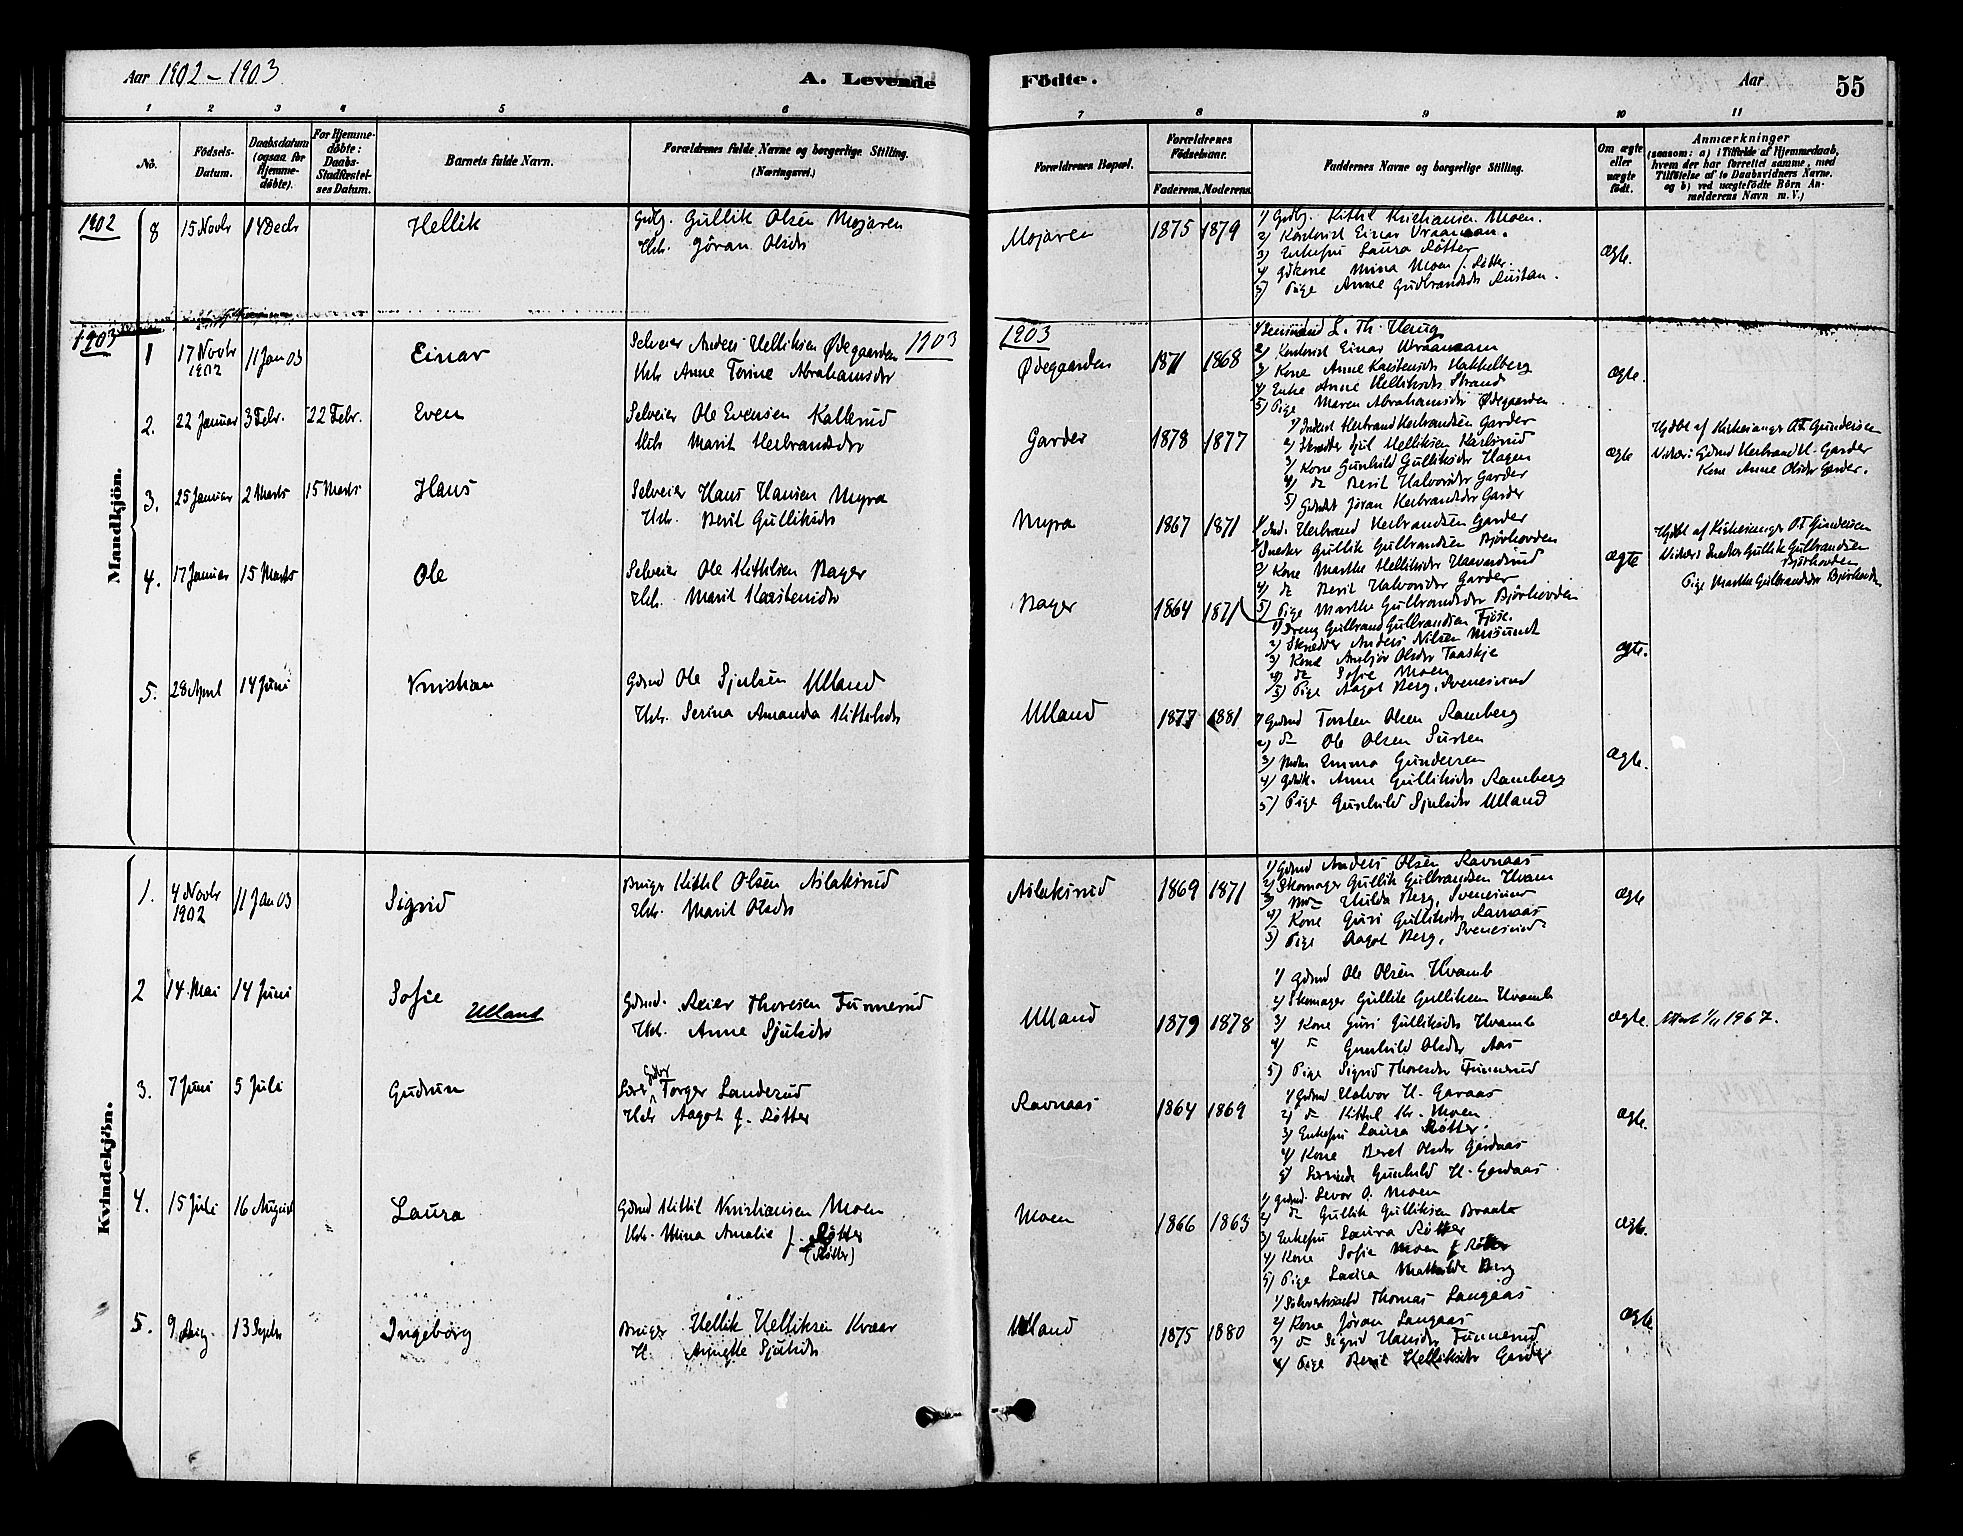 Aar 1902 - 1903
A. Levende Födte.
Aar
55
1 2 3 4 5 6 7 8 9 10 11
No.
Födsels-Datum.
Daabsdatum (ogsaa for Hjemmedöbte).
For Hjemmedöbte: Daabs-Stadfæstelses Datum.
Barnets fulde Navn.
Forældrenes fulde Navne og borgerlige Stilling. (Næringsvei.)
Forældrenes Bopæl.
Forældrenes Födselsaar.
Faderens. Moderens.
Faddernes Navne og borgerlige Stilling.
Om ægte eller uægte födt.
Anmærkninger
(saasom: a) i Tilfælde af Hjemmedaab, hvem der har forrettet samme, med Tilföielse af to Daabsvidners Navne. og b) ved uægtefödte Börn Anmelderens Navn m. V.)
Mandkjön.
1902
8 15 Novbr 14 Decbr Hellik
Gullik Olsen Mojaren
Hstr. Jöran Olsdtr
Mojaren 1875 1879
1) Gdbr. Kittil Kristiansen Moen.
2) Kontorist Einar Vraamann.
3) Enkefru Laura Røtter
4) Gdkone Mina Moen f. Røtter.
5) Pige Anne Gudbrandsdtr Rustan.
ægte.
1903
1 17 Novbr 1902 11 Jan 03 Einar
Selveier Anders Helliksen Ødegaarden 1903
Hstr Anne Torine Abrahamsdtr
1903
Ødegaarden 1871 1868
1) L. Th. Haug
2) Kontorist Einar Vraamann
3) Kone Anne Karstensdtr Hakkelberg
4) Enke Anne Helliksdtr Strand
5) Pige Maren Abrahamsdtr Ødegaarden
ægte.
2. 22 Januar 3 Febr. 22 Febr. Even
Selveier Ole Evensen Kallerud
Hstr Marit Herbrandsdtr
Garder 1878 1877
1) Herbrand Herbrandsen Garder
2) Helliksen Karlsrud
3) Kone Gunhild Gulliksdtr Hagen
4) do Berit Halvorsdtr Garder
5) Jöran Herbrandsdtr Garder
ægte
Hjdbt af Kirkesanger O.T. Gundersen
Vidner: Gdmd Herbrand H. Garder
Kone Anne Olsdtr Garder.
3. 25 Januar 2 Marts 15 Marts Hans
Selveier Hans Hansen Myra
Hstr. Berit Gulliksdtr
Myra 1867 1871
1) Herbrand Herbrandsen Garder
2) Snedker Gullik Gulbrandsen Bjørhovden
3) Kone Marthe Helliksdtr
4) do Berit Halvorsdtr Garder
5) Pige Marthe Gulbrandsdtr Bjørhovden
ægte
Hjdbt af Kirkesanger O.T. Gundersen
Vidner: Snedker Gullik Gulbrandsen
Bjørhovden
Pige Marthe Gulbrandsdtr Bjørhovden
4. 17 Januar 15 Marts Ole
Selveier Ole Kittilsen Bager
Hstr. Marit Karstensdtr
Bager 1864 1871
1) Dreng Gulbrand Gulbrandsen Fjøse.
2) Skredder Anders Nilsen Misund
3) Kone Ambjør Olsdtr Taaskje
4) do Sofie Moen
5) Pige Aagot Berg, Svenesund
ægte.
5. 28 April 14 Juni Kristian
Gdmd Ole Sjulsen Ulland
Hstr. Serina Amanda Kittilsdtr
Ulland 1877 1881
1) Gdmd Torsten Olsen Ramberg
2) do Ole Olsen Susten
3) Emma Gundersen
4) Gdmk. Anne Gulliksdtr Ramberg
5) Pige Gunhild Sjulsdtr Ulland
ægte.
Kvindekjön.
1. 4 Novbr 1902 11 Jan 03 Sigrid
Bruger Kittil Olsen Aslaksrud
Hstr. Marit Olsdtr
Aslaksrud 1869 1871
1) Gdmd Anders Olsen Ravnaas
2) Skomager Gullik Gulbrandsen Hvam
3) Hilda Berg, Svenesund
4) Kone Guri Gulliksdtr Ravnaas
5) Pige Aagot Berg, Svenesund
ægte
2 14 Mai 14 Juni Sofie Ulland
Gdmd. Reier Thoresen Funnerud
Hstr. Anne Sjulsdtr
Ulland 1879 1878
1) Gdmd Ole Olsen Hvamb
2) Skomager Gullik Gulliksen Hvamb
3) Kone Guri Gulliksdtr Hvamb
4) do Gunhild Olsdtr Aas
5) Pige Sigrid Thoresdtr Funnerud
ægte.
Attest 1/11 1967.
3. 7 Juni 5 Juli Gudrun
Lærer Gdbr Torger Landerud
Hstr Aagot f. Røtter
Ravnaas 1864 1869
1) Gdmd Halvor H. Garaas
2) do Kittil Kr. Moen
3) Enkefru Laura Røtter.
4) Kone Beret Olsdtr Gardaas
5) Gunhild H. Gardaas
ægte.
4. 15 Juli 16 August Laura
Gdmd Kittil Kristiansen Moen
Hstr. Mina Amalie f. Røtter
(Røtter)
Moen 1866 1863
1) Gdmd. Sevor O. Moen
2) do Gullik Gulliksen Braata
3) Enkefru Laura Røtter
4) Kone Sofie Moen f Røtter
5) Pige Laura Mathilde Berg
ægte.
5. 9 Aug. 13 Septbr Ingeborg
Bruger Hellik Helliksen Kvaar
H. Annette Sjulsdtr
Ulland 1875 1880
1) Thomas Langaas
2) Kone Jøran Langaas
3) do Sigrid Hansdtr Funnerud
4) Pige Berit Helliksdtr Garder
ægte